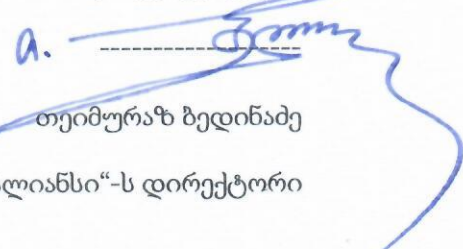 a. --------------------
თეიმურაზ ბედინაძე
ლიანსი“-ს დირექტორი